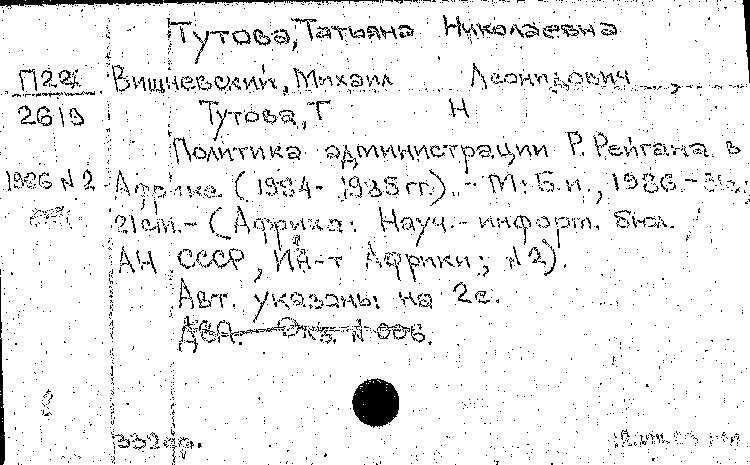 Тутова, Татьяна Николаевна
П22 Вишневский, Михаил Леонидович,
2619 Тутова, Т Н
Политика администрации Р. Рейгана в
1986 N 2 Африке (1984-1985 гг.). - М: Б.и., 1986. - 31с.;
21см. - (Африка: Науч.- информ. бюл. /
АН СССР, Ин-т Африки; N 2).
Авт. указаны на 2с.
ДСП. Экз. N 006.